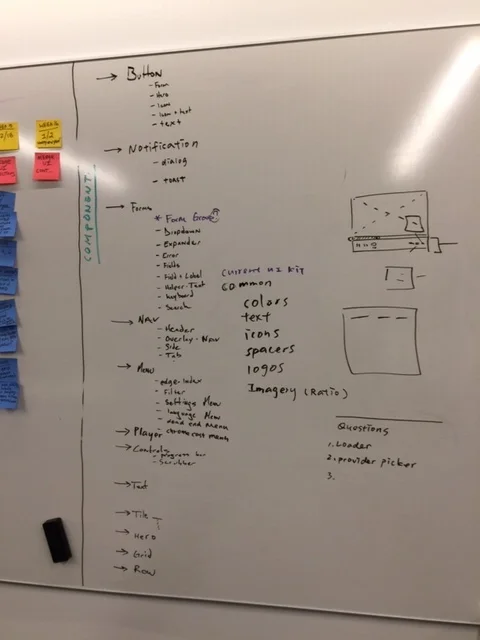 COMPONENT
→ Button
- Form
- Hero
- Icon
- Icon + text
- text
→ Notification
- dialog
- toast
→ Forms
* Form Group
- Dropdown
- Expander
- Error
- Fields
- Field + Label
- Helper-Text
- Keyboard
- Search
→ Nav
- Header
- Overlay-Nav
- Side
- Tab
→ Menu
- edge-index
- Filter
- Settings Menu
- language Menu
- chromecast menu
→ Player
→ Controls
- progress bar
- Scrubber
→ Text
→ Tile
→ Hero
→ Grid
→ Row
Current UI Kit
common
colors
text
icons
spacers
logos
Imagery (Ratio)
Questions
1. Loader
2. provider picker
3.